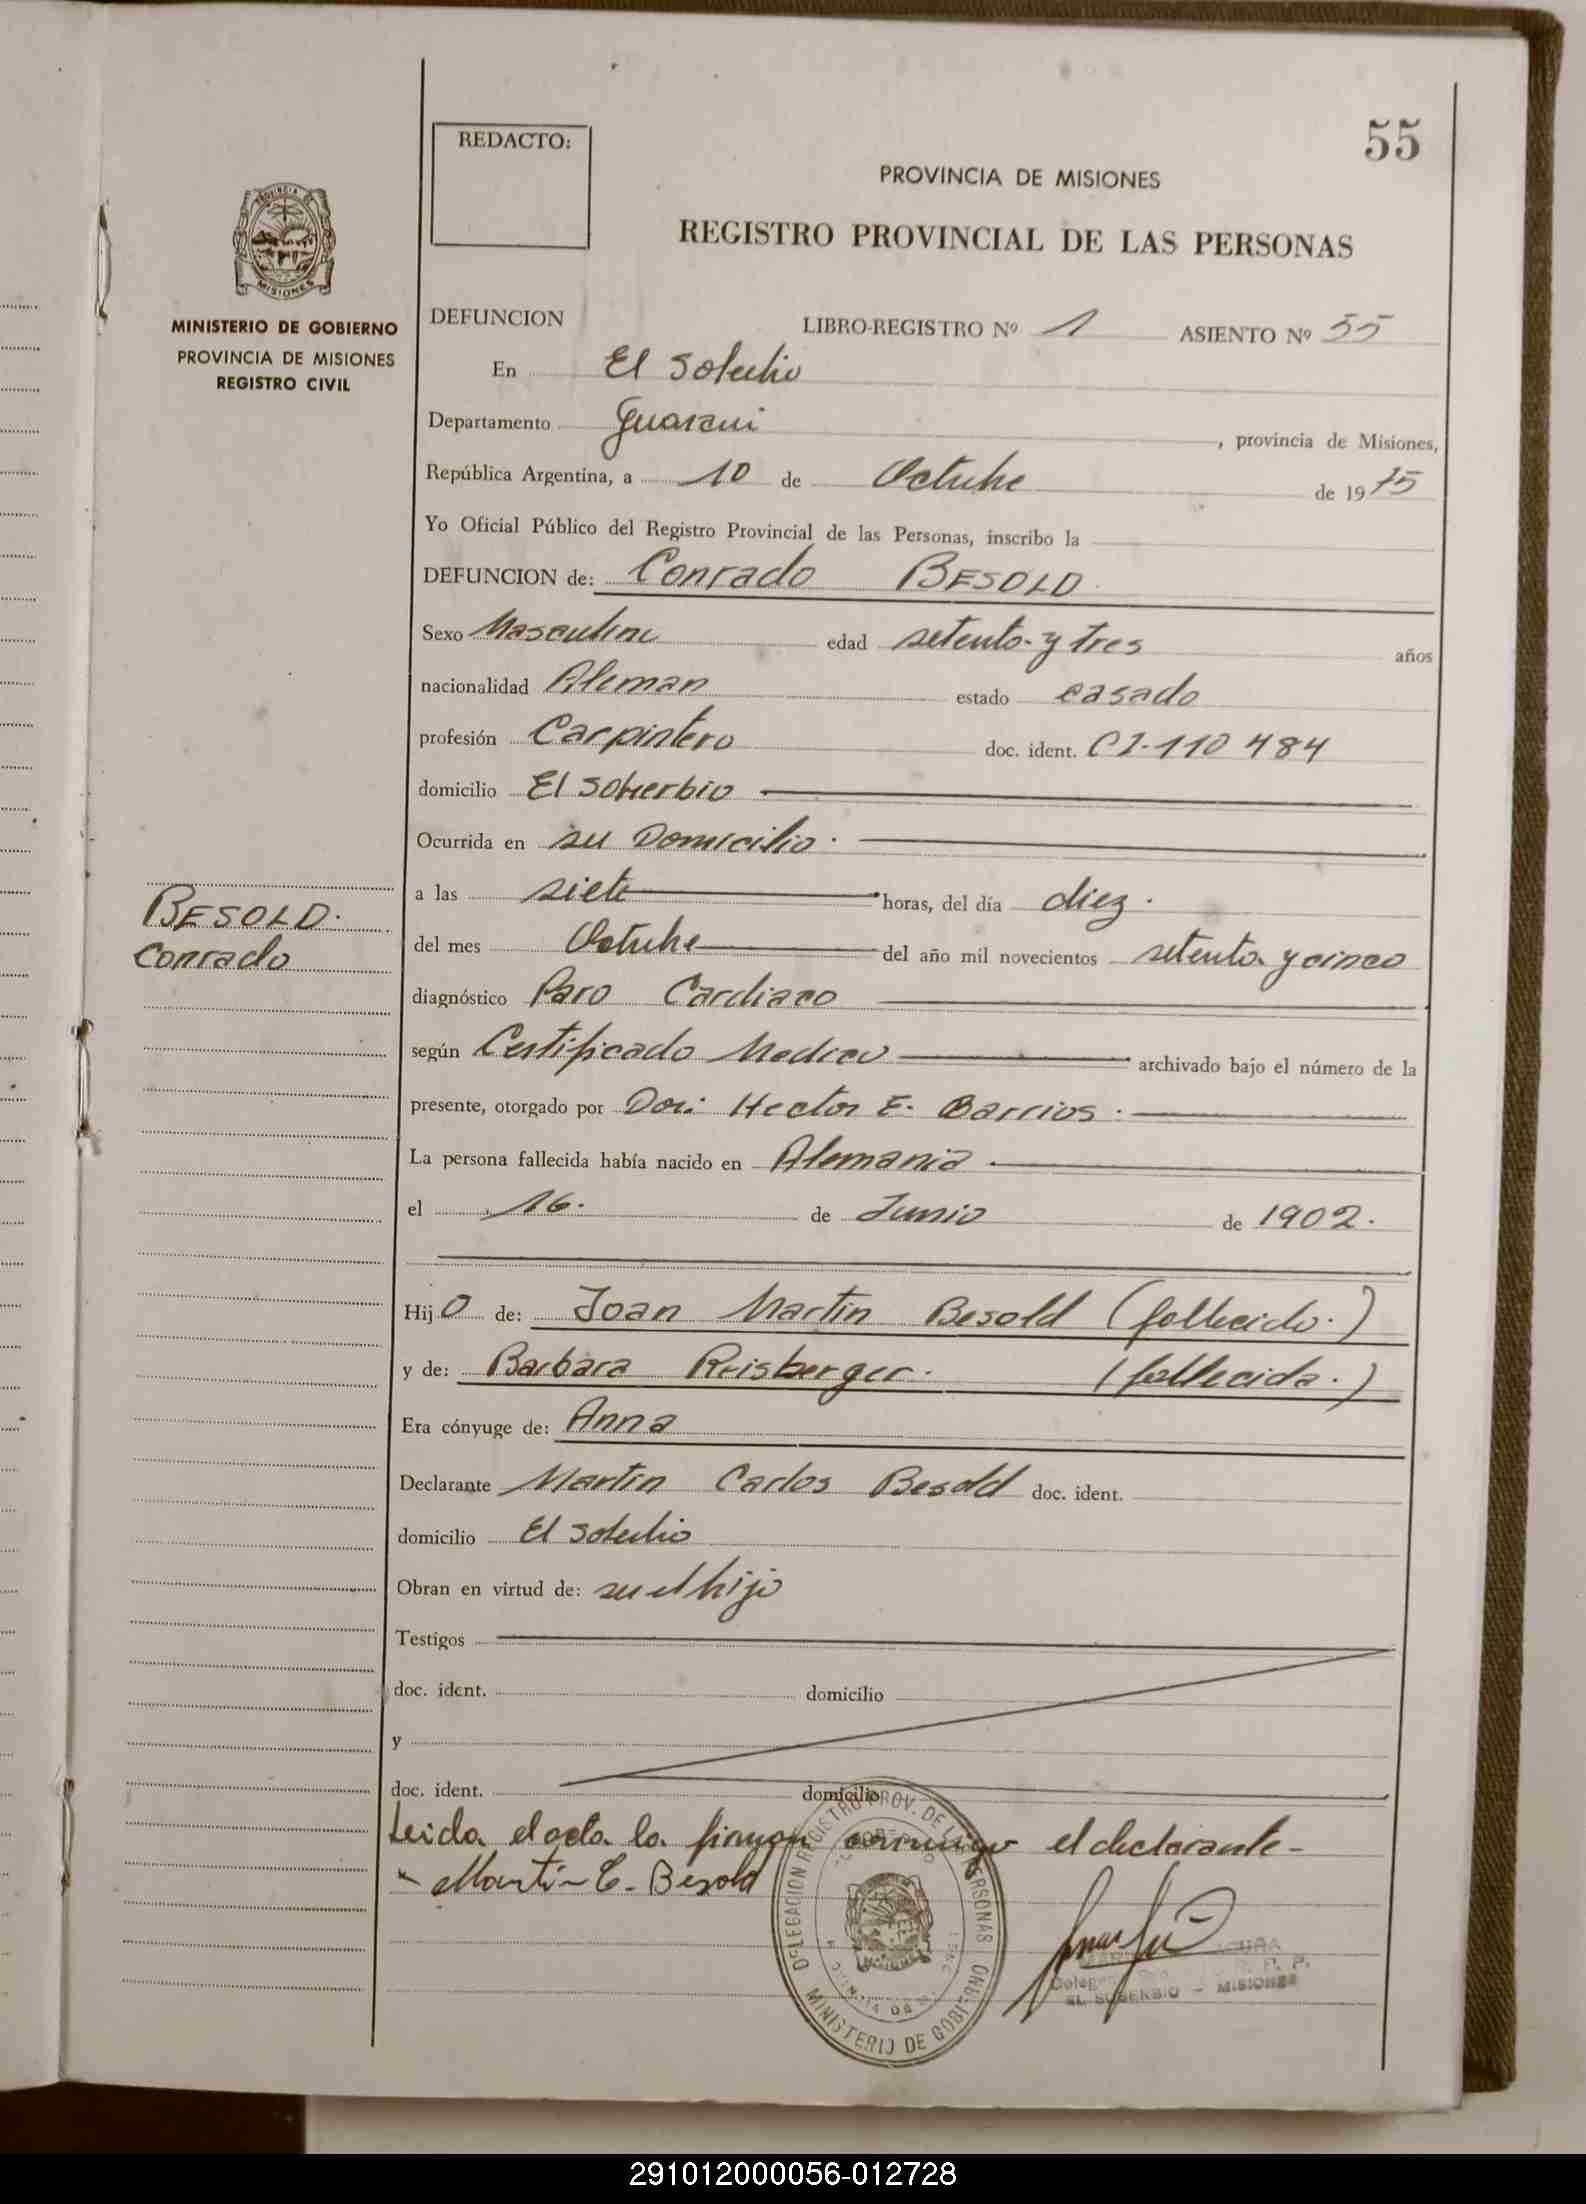 55
REDACTO:
PROVINCIA DE MISIONES
REGISTRO PROVINCIAL DE LAS PERSONAS
PROVINCIA DE
MISIONES
MINISTERIO DE GOBIERNO
PROVINCIA DE MISIONES
REGISTRO CIVIL
DEFUNCION LIBRO-REGISTRO Nº 1 ASIENTO Nº 55
En El Soberbio
Departamento Guarani, provincia de Misiones,
República Argentina, a 10 de Octubre de 1975
Yo Oficial Público del Registro Provincial de las Personas, inscribo la
DEFUNCION de: Conrado BESOLD
Sexo Masculino edad setenta y tres años
nacionalidad Aleman estado casado
profesión Carpintero doc. ident. CI-110 484
domicilio El Soberbio
Ocurrida en su Domicilio.
a las siete horas, del día diez.
BESOLD.
Conrado
del mes Octubre del año mil novecientos setenta y cinco
diagnóstico Paro Cardiaco
según Certificado Medico archivado bajo el número de la
presente, otorgado por Dor: Hector E. Barrios.
La persona fallecida había nacido en Alemania
el 16. de Junio de 1902.
Hijo de: Joan Martin Besold (fallecido.)
y de: Barbara Reisberger. (fallecida.)
Era cónyuge de: Anna
Declarante Martin Carlos Besold doc. ident.
domicilio El Soberbio
Obran en virtud de: su el hijo
Testigos
doc. ident. domicilio
y
doc. ident. domicilio
Leida el acta la firman conmigo el declarante-
Martin C. Besold
DELEGACION REGISTRO PROV. DE LAS PERSONAS
MINISTERIO DE GOB.
EL SOBERBIO - MISIONES
291012000056-012728